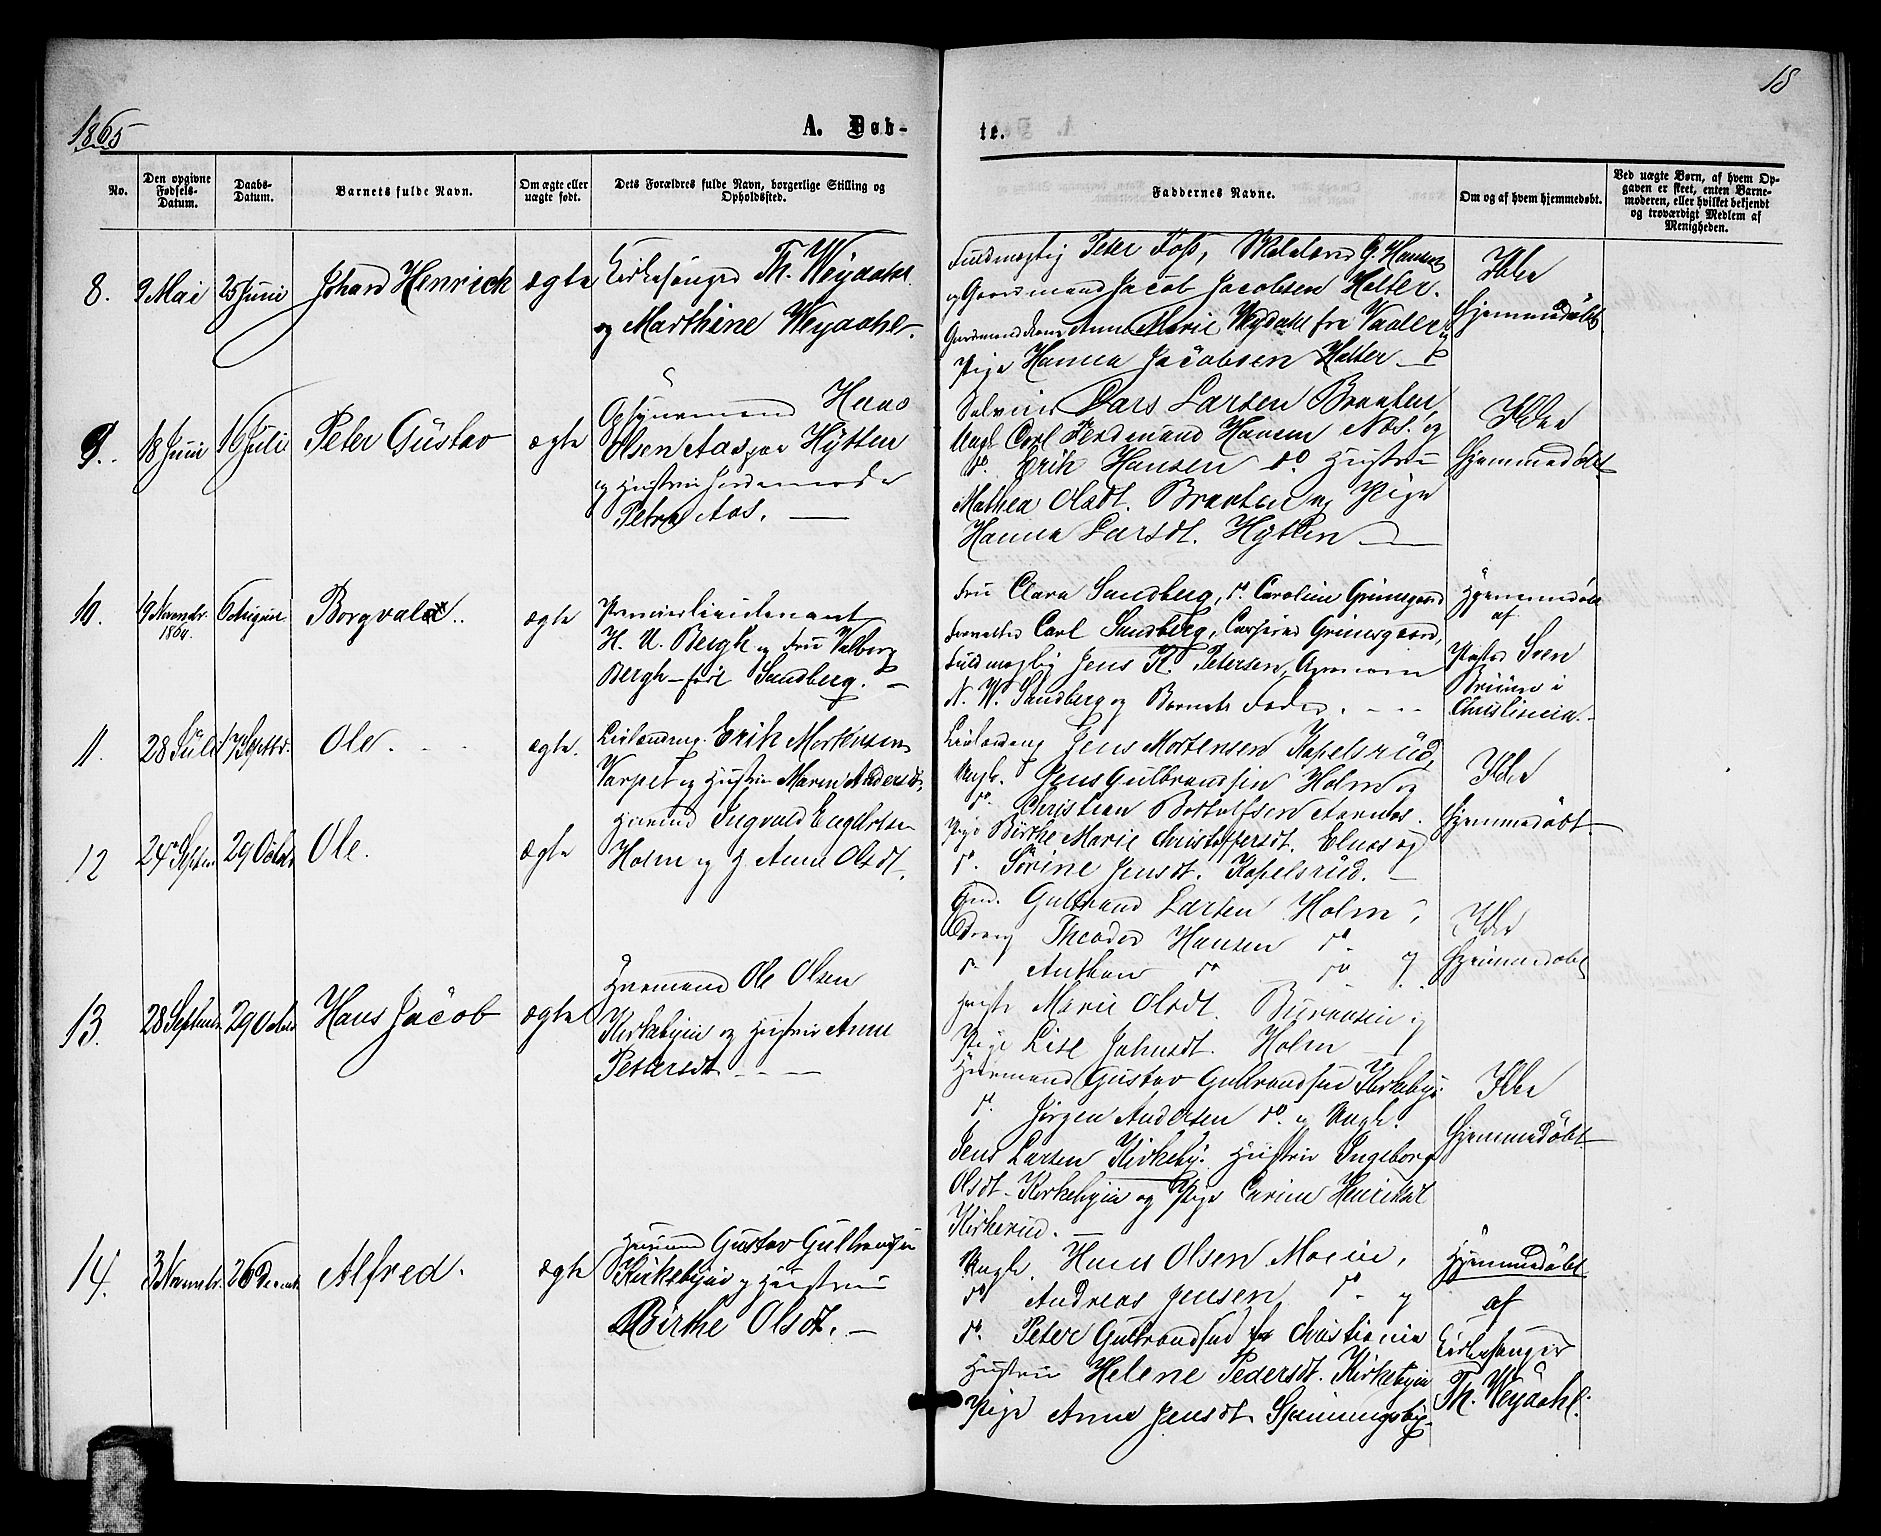 18
1865
A. Døb-
te.
No.
Den opgivne Fødsels-Datum.
Daabs-Datum.
Barnets fulde Navn.
Om ægte eller uægte født.
Dets Forældres fulde Navn, borgerlige Stilling og Opholdssted.
Faddernes Navne.
Om og af hvem hjemmedøbt.
Ved uægte Børn, af hvem Op-
gaven er skeet, enten Barne-
moderen, eller hvilket bekjendt
og troværdigt Medlem af
Menigheden.
8. 9 Mai 25 Juni Johan Henrick ægte
Kirkesanger Th. Weydahl
og Marthine Weydahl.
Fuldmægtig Peter Foss, G. Hansen
og Gaardmand Jacob Jacobsen Holter.
Anne Marie Weydahl fra Vaaler og
Pige Hanna Jacobsen Holter
Ikke
Hjemmedøbt
9. 18 Juni 16 Juli Peter Gustav ægte
Opsynsmand Hans
Olsen Aas paa Hytten
og Hustru
Petra Aas.
Lars Larsen Braaten
Ungk. Carl Ferdinand Hansen Næs. og
do. Erik Hansen do Hustru
Mathea Olsdt. Braaten og Pige
Hanna Larsdt. Hytten
Ikke
Hjemmedøbt
10. 19 Novembr. 1864. 6 August Borgvald. ægte
Premierlieutenant
H. U. Bergh og Fru Valborg
Bergh født Sandberg.
Fru Clara Sandberg, do. Caroline Grimsgaard
Forvalter Carl Sandberg, Casserer Grimsgaard,
Fuldmægtig Jens K. Petersen,
N. W. Sandberg og Barnets Fader.
Hjemmedøbt
af
Pastor Sven
Bruun i
Christiania.
11. 28 Juli 17 Septbr. Ole. ægte.
Erik Mortensen
Varpet og Hustru Maren Andersdt.
Jens Mortensen Kapelsrud,
Ungk. Jens Gulbrandsen Holm og
do. Christian Botholfsen Aarnæs.
Pige Birthe Marie Christoffersdt. Elnæs og
do. Sørine Jensdt. Kapelsrud.
Ikke
Hjemmedøbt.
12 24 Septbr 29 Octobr Ole. ægte
Huusmd Ingvald Engebretsen
Holm og H. Anne Olsdt.
Gulbrand Larsen Holm,
Theodor Hansen do
do Anthon do do og
Marie Olsdt. Buraasen og
Pige Lise Johnsdt. Holm
Ikke
Hjemmedøbt
13. 28 Septembr 29 Octobr Hans Jacob ægte
Huusmand Ole Olsen
Kirkebyeie og Hustru Anne
Petersdt
Huusmand Gustav Gulbrandsen Kirkebyei
do. Jørgen Andersen do. og Ungk.
Jens Larsen Kirkeby. Hustru Ingeborg
Olsdt. Kirkebyeie og Pige Carine Henriksdt
Kirkerud.
Ikke
Hjemmedøbt
14. 3 Novembr. 26 Decembr Alfred. ægte
Huusmand Gustav Gulbrandsen
Kirkebyeie og Hustru
Birthe Olsdt.
Ungk. Hans Olsen Moeie,
do Andreas Jensen do. og
do. Peter Gulbrandsen fra Christiania
Hustru Helene Pedersdt. Kirkebyeie
Pige Anne Jensdt. Spenningsby.
Hjemmedøbt
af
Kirkesanger
Th. Weydahl.